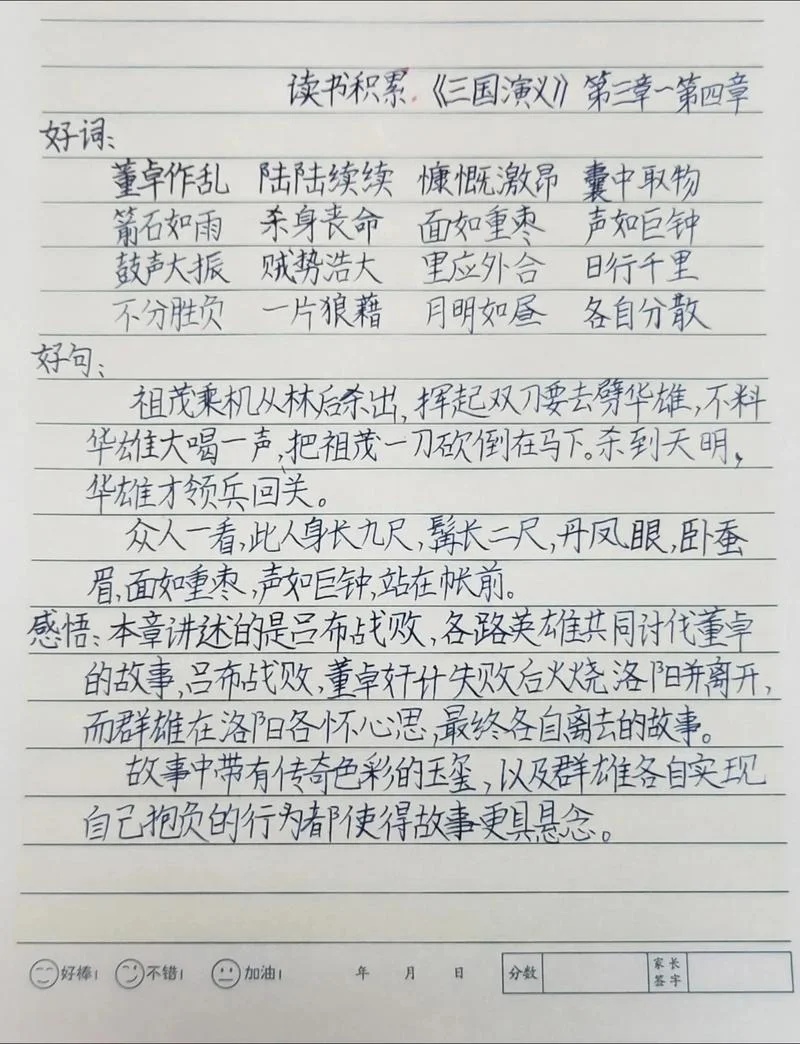 读书积累.《三国演义》第三章~第四章
好词：
董卓作乱 陆陆续续 慷慨激昂 囊中取物
箭石如雨 杀身丧命 面如重枣 声如巨钟
鼓声大振 贼势浩大 里应外合 日行千里
不分胜负 一片狼藉 月明如昼 各自分散
好句：
祖茂乘机从林后杀出，挥起双刀要去劈华雄，不料
华雄大喝一声，把祖茂一刀砍倒在马下。杀到天明，
华雄才领兵回关。
众人一看，此人身长九尺，髯长二尺，丹凤眼，卧蚕
眉，面如重枣，声如巨钟，站在帐前。
感悟：本章讲述的是吕布战败，各路英雄共同讨伐董卓
的故事，吕布战败，董卓奸计失败后火烧洛阳并离开，
而群雄在洛阳各怀心思，最终各自离去的故事。
故事中带有传奇色彩的玉玺，以及群雄各自实现
自己抱负的行为都使得故事更具悬念。
好棒！ 不错！ 加油！ 年 月 日 分数 家长签字